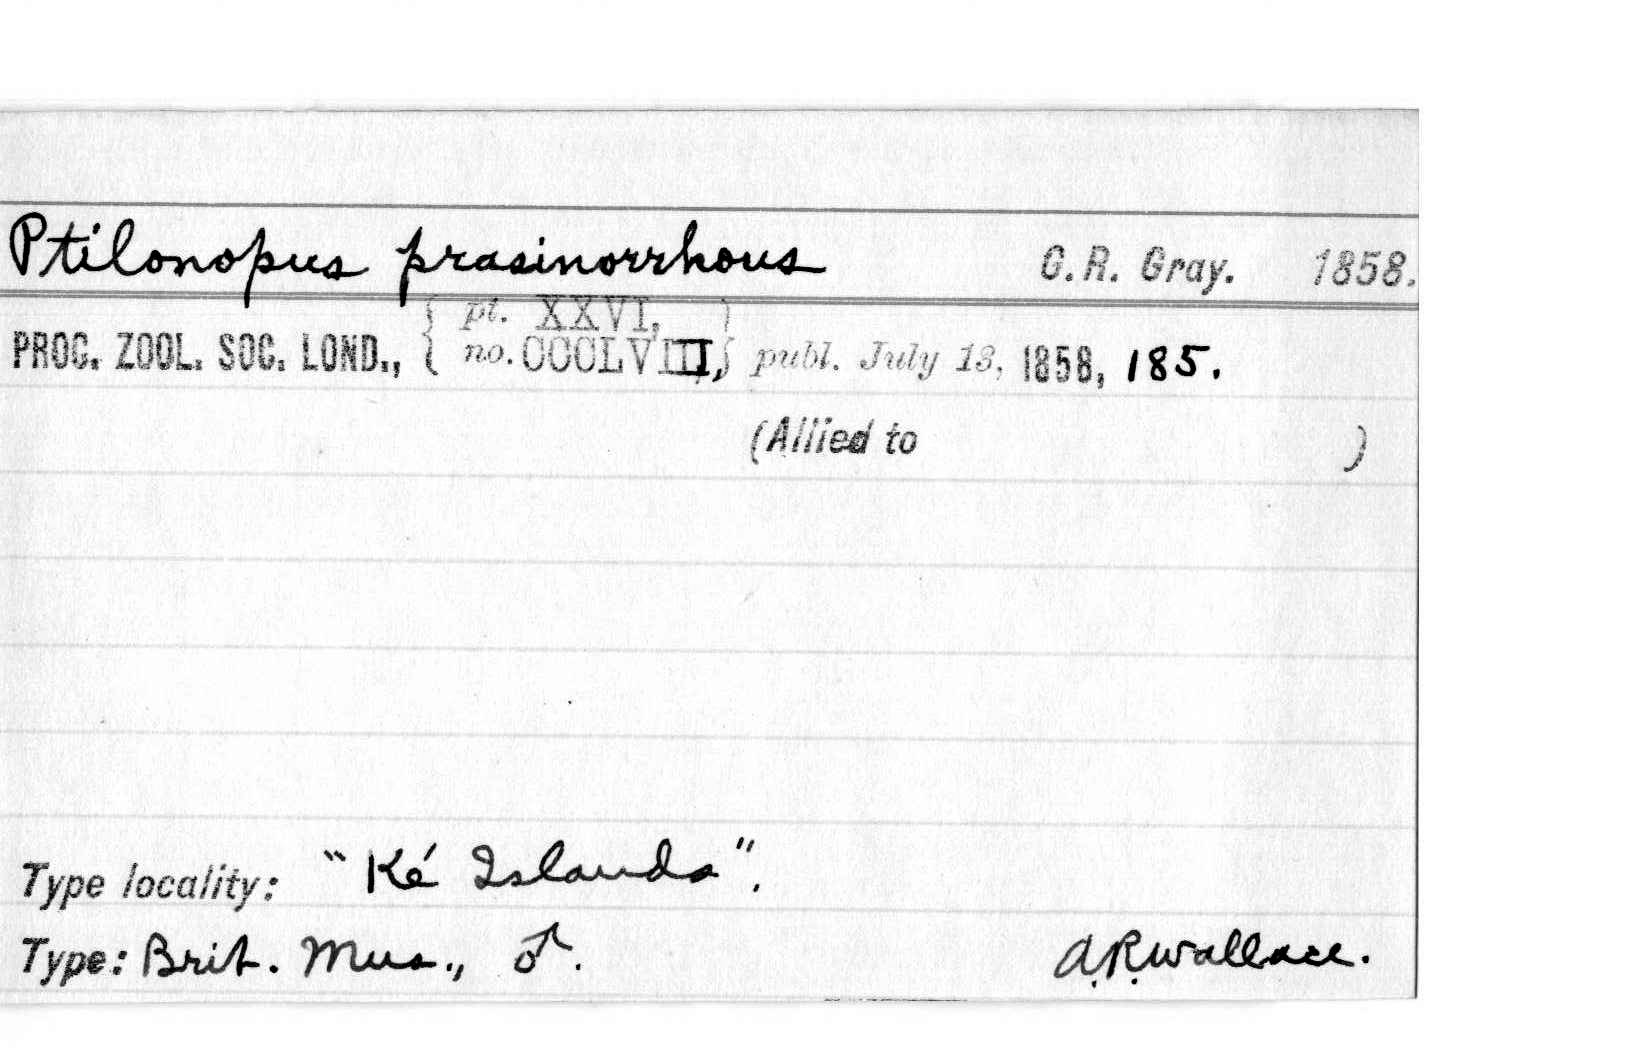 Ptilonopus prasinorrhous G. R. Gray. 1858.
{ pt. XXVI, }
PROC. ZOOL. SOC. LOND., { no. CCCLVIII, } publ. July 13, 1858, 185.
(Allied to )
Type locality: "Ké Islands".
Type: Brit. Mus., ♂. A.R. Wallace.